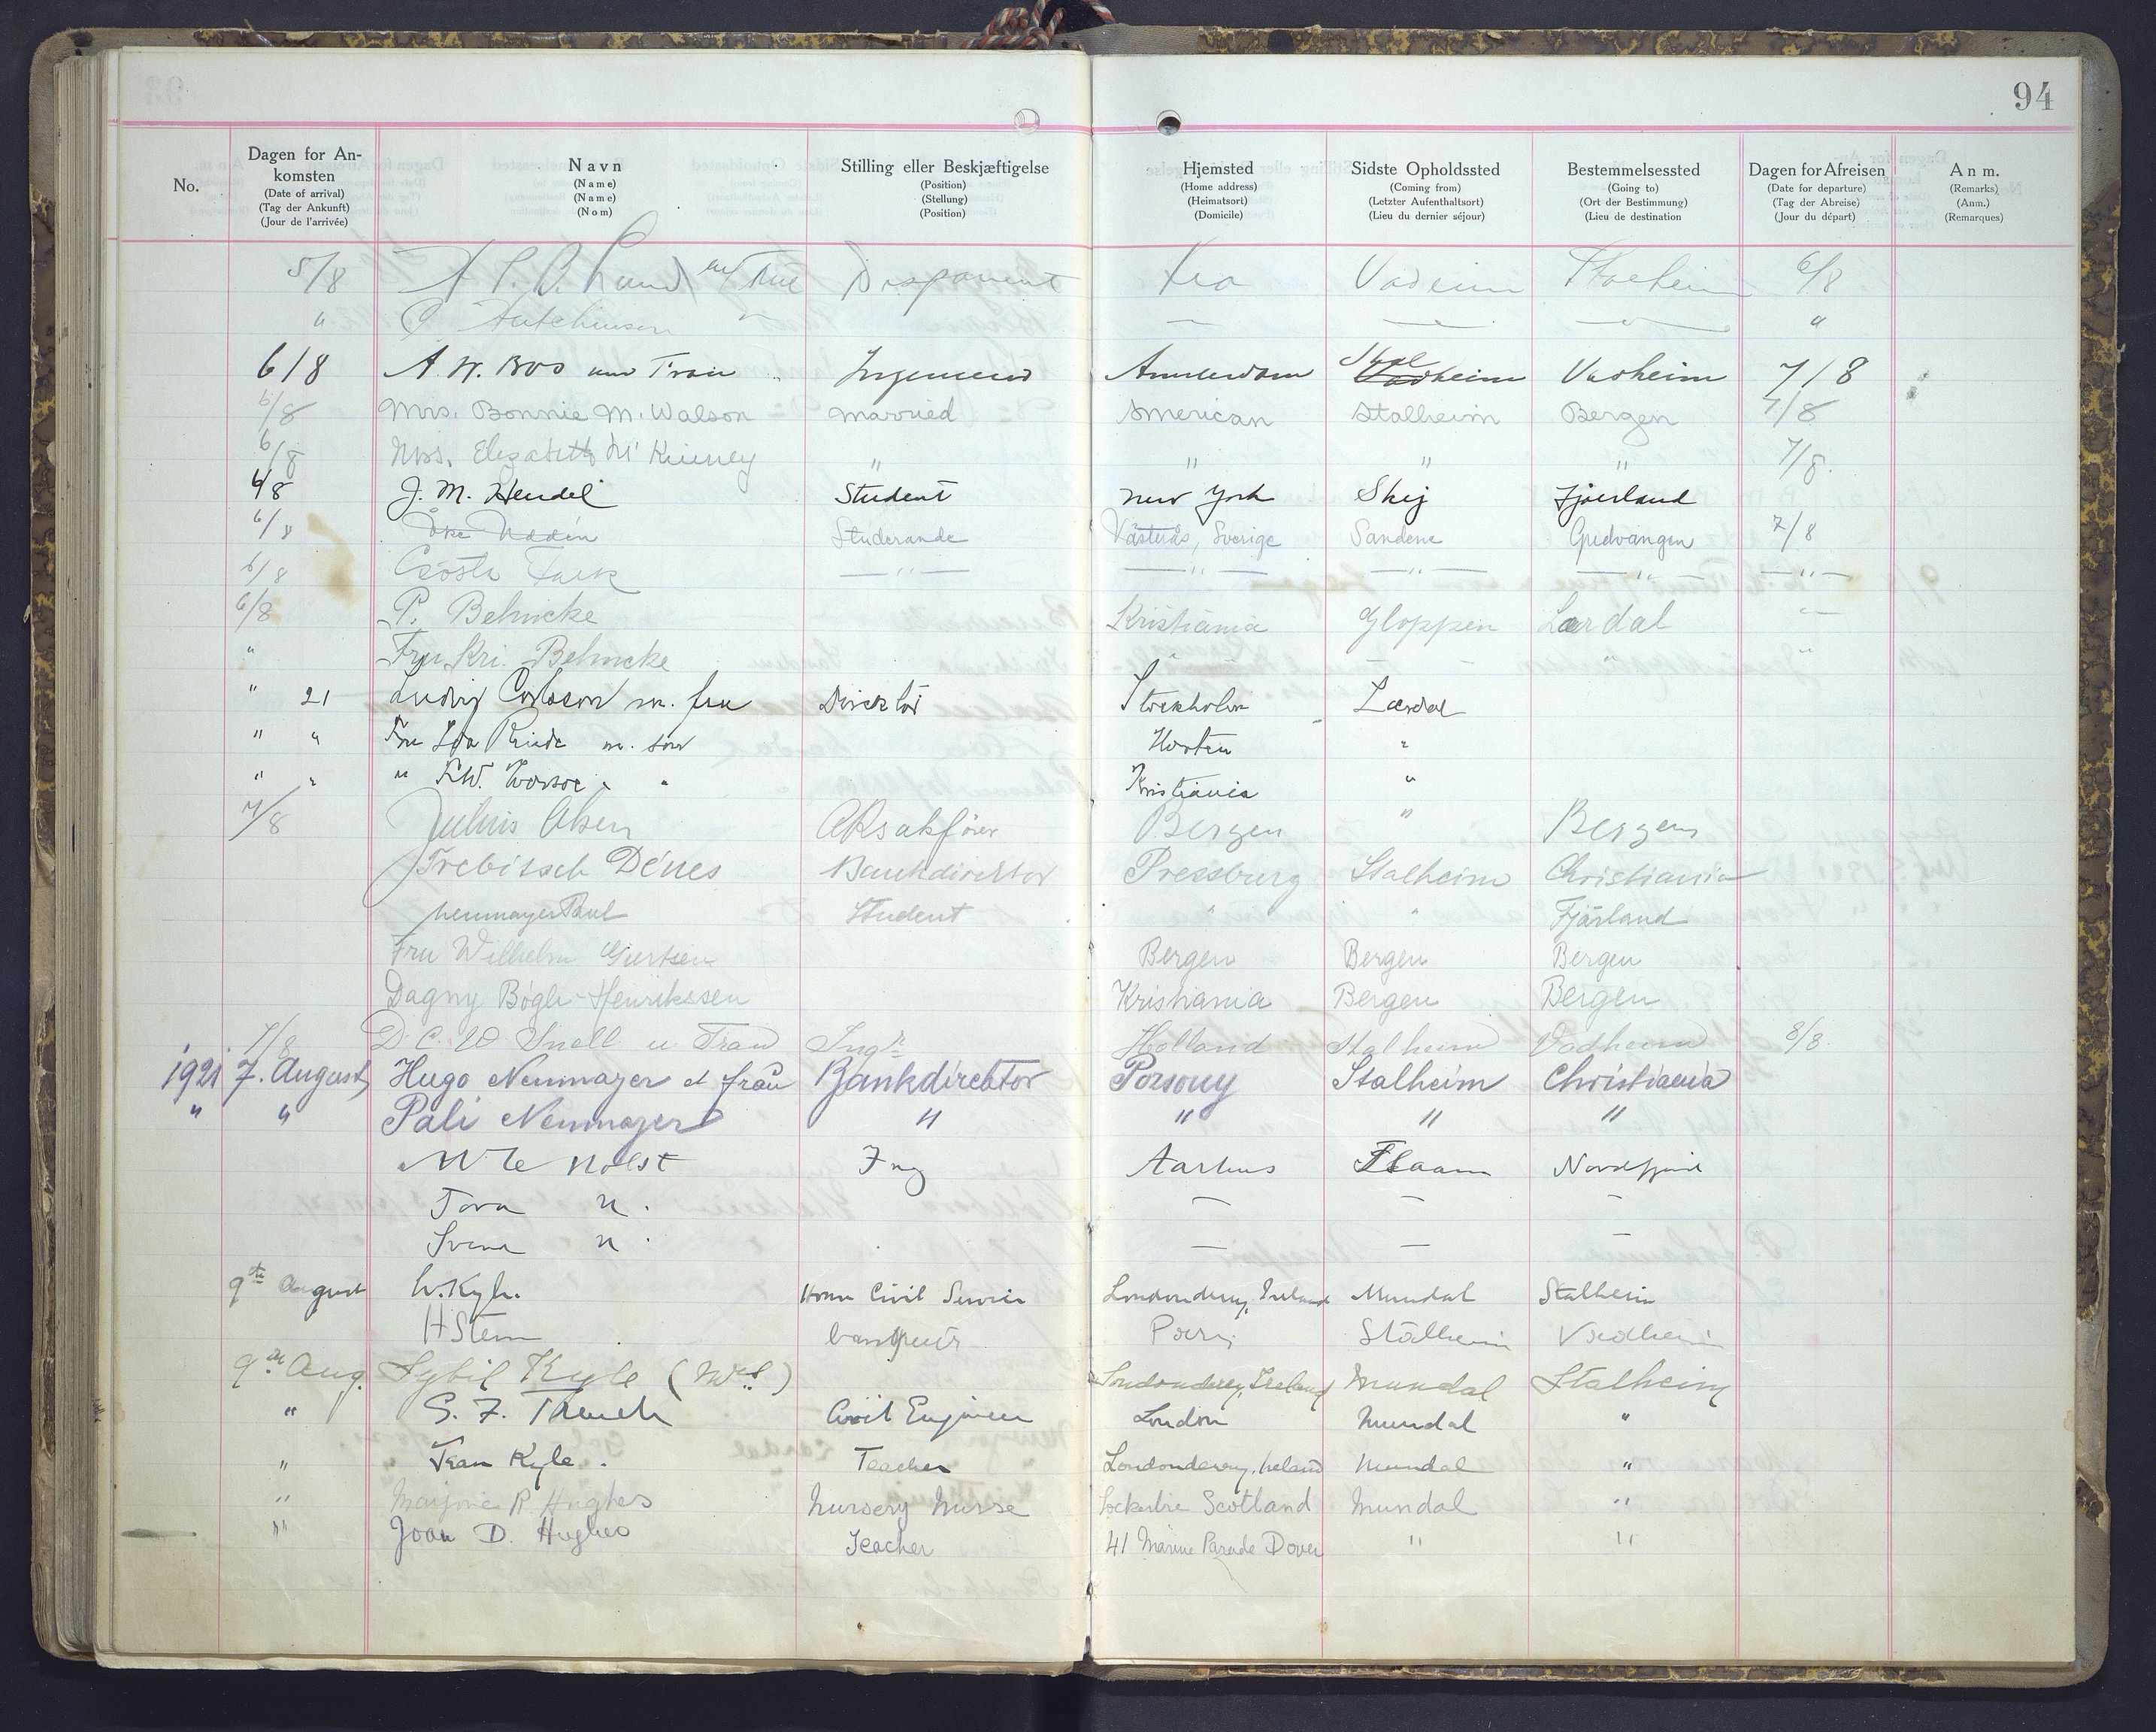 94
No. Dagen for An-komsten (Date of arrival) (Tag der Ankunft) (Jour de l'arrivée) Navn (Name) (Name) (Nom) Stilling eller Beskjæftigelse (Position) (Stellung) (Position) Hjemsted (Home address) (Heimatsort) (Domicile) Sidste Opholdssted (Coming from) (Letzter Aufenthaltsort) (Lieu du dernier séjour) Bestemmelsessted (Going to) (Ort der Bestimmung) (Lieu de destination Dagen for Afreisen (Date for departure) (Tag der Abreise) (Jour du départ) Anm. (Remarks) (Anm.) (Remarques)
5/8 Lund Disponent Kra Vadeim 6/8
" Hutchinson — — — "
6/8 A. W. Bos und Frau Ingenieur Amsterdam Stalheim Vadheim 7/8
6/8 Mrs. Bonnie M. Walson married American Stalheim Bergen 7/8
6/8 Mrs. Elizabeth Mc Kinney " " " " 7/8.
6/8 J. M. Hendel Student New York Skij Fjaerland
6/8 Åke Uddén Studerande Västerås, Sverige Sandene Gudvangen 7/8
6/8 Gösta Falk —"— —"— —"— —"— —"—
6/8 P. Behncke Kristiania Gloppen Lærdal "
" Fru Kri. Behncke " " " "
" 21 Ludvig Carlsson m. fru Direktör Stockholm Lærdal
" " Fru m. sønn Horten "
" " " " " Kristiania "
7/8 Julius Olsen Bergen " Bergen
Trebitsch Dénes Bankdirektor Pressburg Stalheim Christiania
Neumayer Paul Student " " Fjärland
Fru Wilhelm Giertsen Bergen Bergen Bergen
Dagny Bøgh-Henrikssen Kristiania Bergen Bergen
7/8 D. C. W. Snell u. Frau Ingr Holland Stalheim Vadheim 8/8
1921 7. August Hugo Neumayer et frau Bankdirektor Pozsony Stalheim Christiania
" " Pali Neumayer " " " "
Holst Ing Aarhus Flaam Nordfjord
Tova H. — — —
Svend H. — — —
9th August W. Kyle. Home Civil Service Londonderry, Ireland Mundal Stalheim
H Stern banquier Paris Stalheim Vadheim
9th Aug. Sybil Kyle (Mrs.) Londonderry, Ireland Mundal Stalheim
" S. F. Trench Civil Engineer London Mundal "
" Jean Kyle. Teacher Londonderry, Ireland Mundal "
" Marjorie R Hughes Nursery Nurse Lockerbie Scotland Mundal "
" Joan D. Hughes Teacher 41 Marine Parade Dover " "